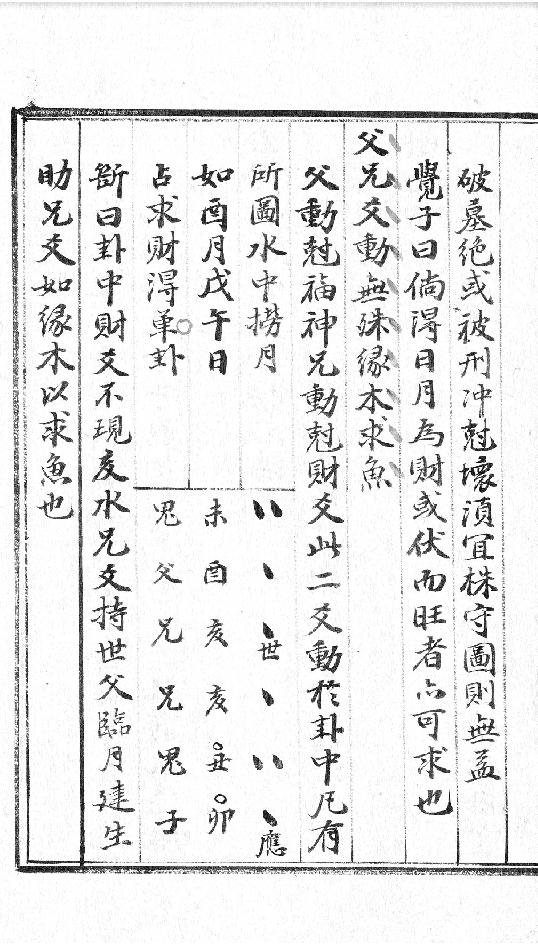 破墓絕或被刑冲尅壞須宜株守圖則無益
覺子曰倘淂日月為財或伏而旺者亦可求也
父兄爻動無殊緣木求魚
父動尅福神兄動尅財爻此二爻動於卦中凡有
所圖水中撈月
如酉月戊午日
占求財淂单卦
、、 、 、世 、 、、 、應
未 酉 亥 亥 丑 卯
鬼 父 兄 兄 鬼 子
斷曰卦中財爻不現亥水兄爻持世父臨月建生
助兄爻如緣木以求魚也